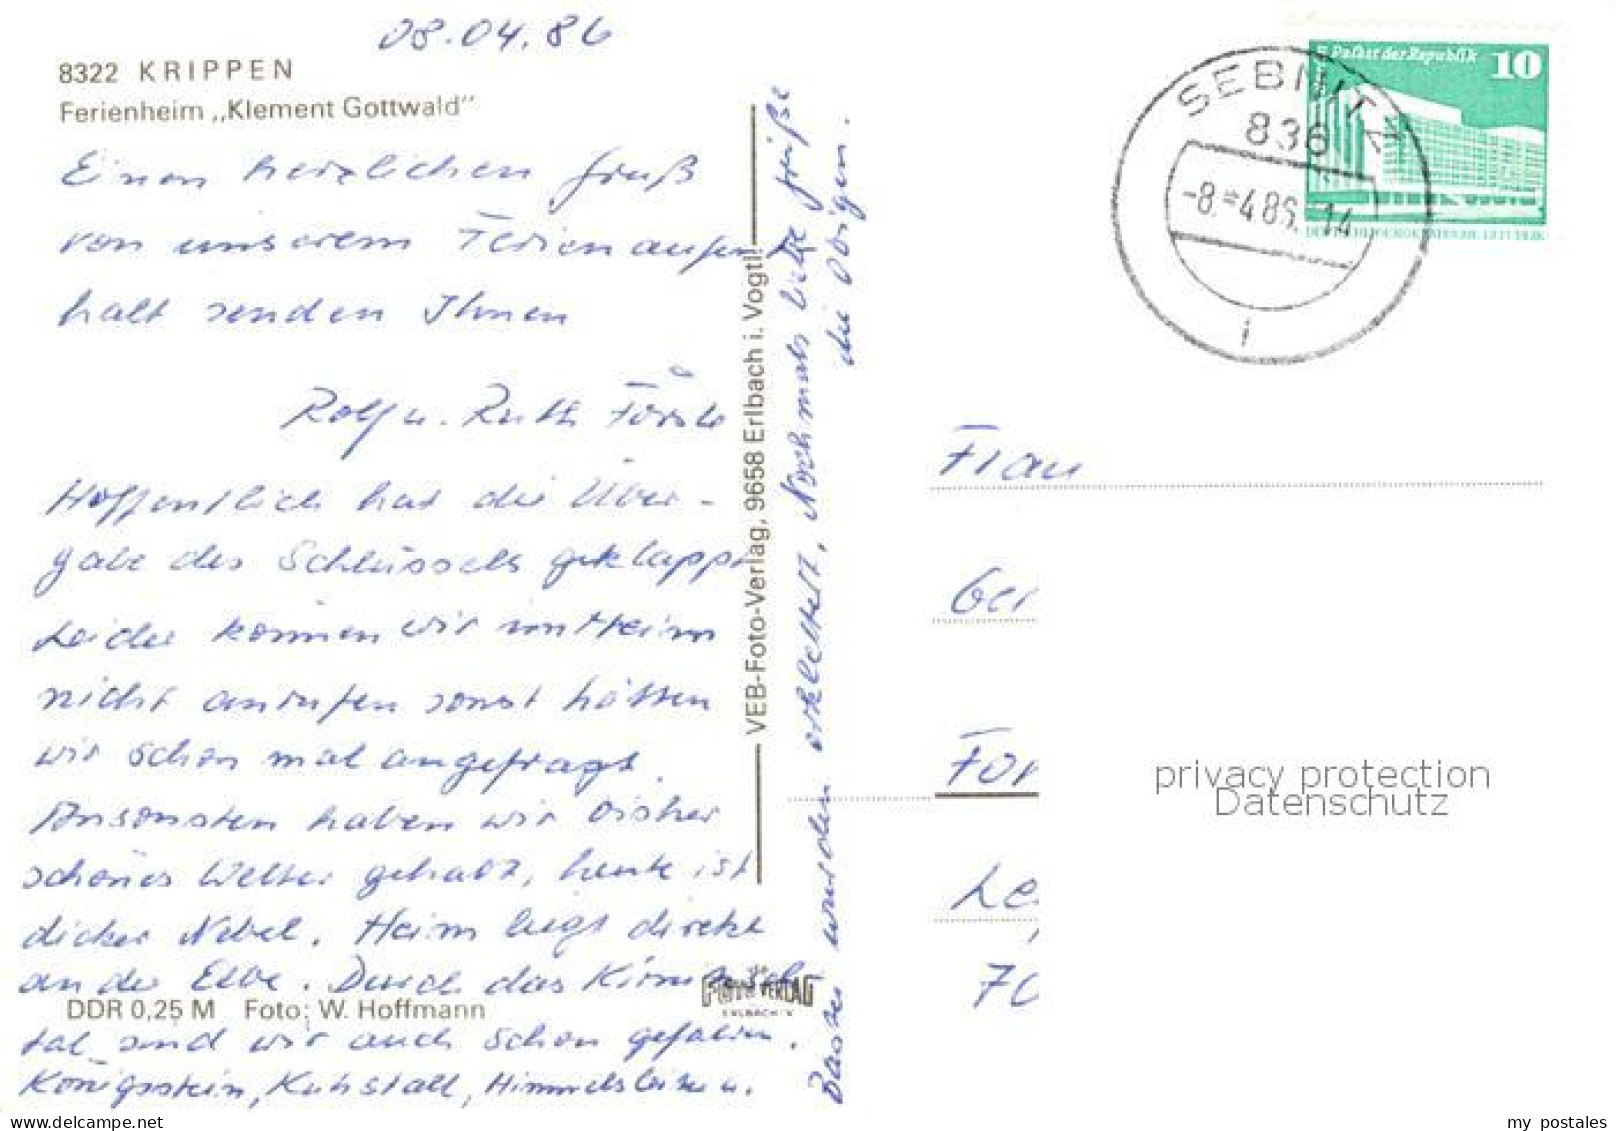 08.04.86
8322 KRIPPEN
Ferienheim „Klement Gottwald"
Einen herzlichen Gruß
von unserem Ferienaufent
halt senden Ihnen
Rolf u. Ruth
Hoffentlich hat die Über-
gabe des Schlüssels geklappt
Leider können wir im Heim
nicht anrufen sonst hätten
wir schon mal angefragt.
Ansonsten haben wir bisher
schönes Wetter gehabt, heute ist
dicker Nebel. Heim liegt direkt
an der Elbe. Durch das Kirnitzsch
DDR 0,25 M Foto: W. Hoffmann
tal sind wir auch schon gefahren.
Königstein, Kuhstall, Himmelsleiter u.
Bastei wurden erklettert. Nochmals liebe Grüße
die Obigen.
VEB-Foto-Verlag, 9658 Erlbach i. Vogtl.
FOTO VERLAG
ERLBACH/V
SEBNITZ
836
-8.-4.86.-14
i
Palast der Republik 10
DEUTSCHE DEMOKRATISCHE REPUBLIK
Frau
Ger
For
Le
70
privacy protection
Datenschutz
my postales
delcampe.net